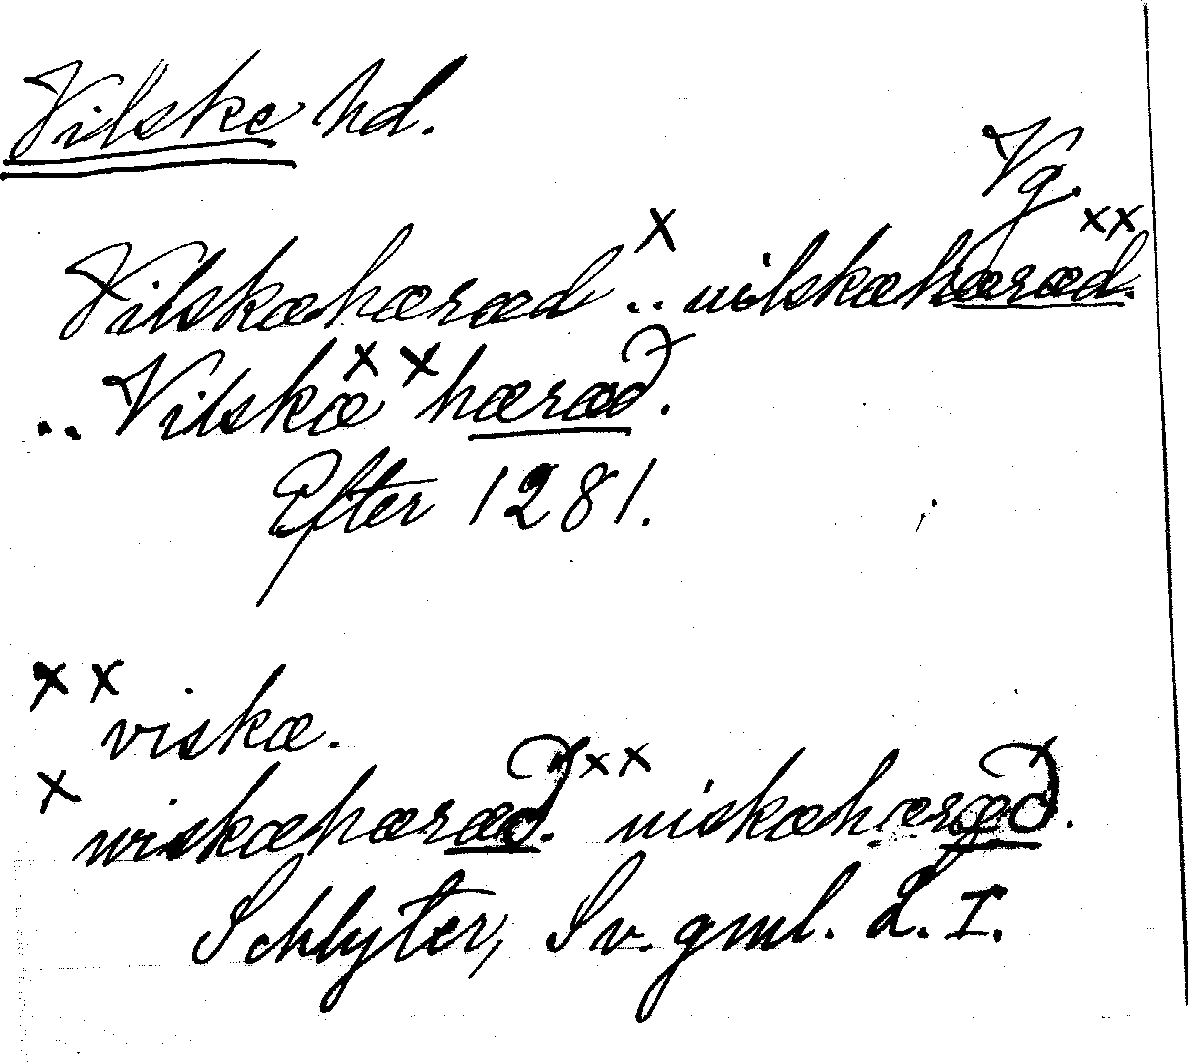 Vilske hd.
Vg.
Vilskæhæræd x .. uilskæhæræd. xx
.. Vilskæ xx hæræð.
Efter 1281.
xx viskæ.
x wiskæhæræð. xx uiskæhæræð.
Schlyter, Sv. gml. L. I.